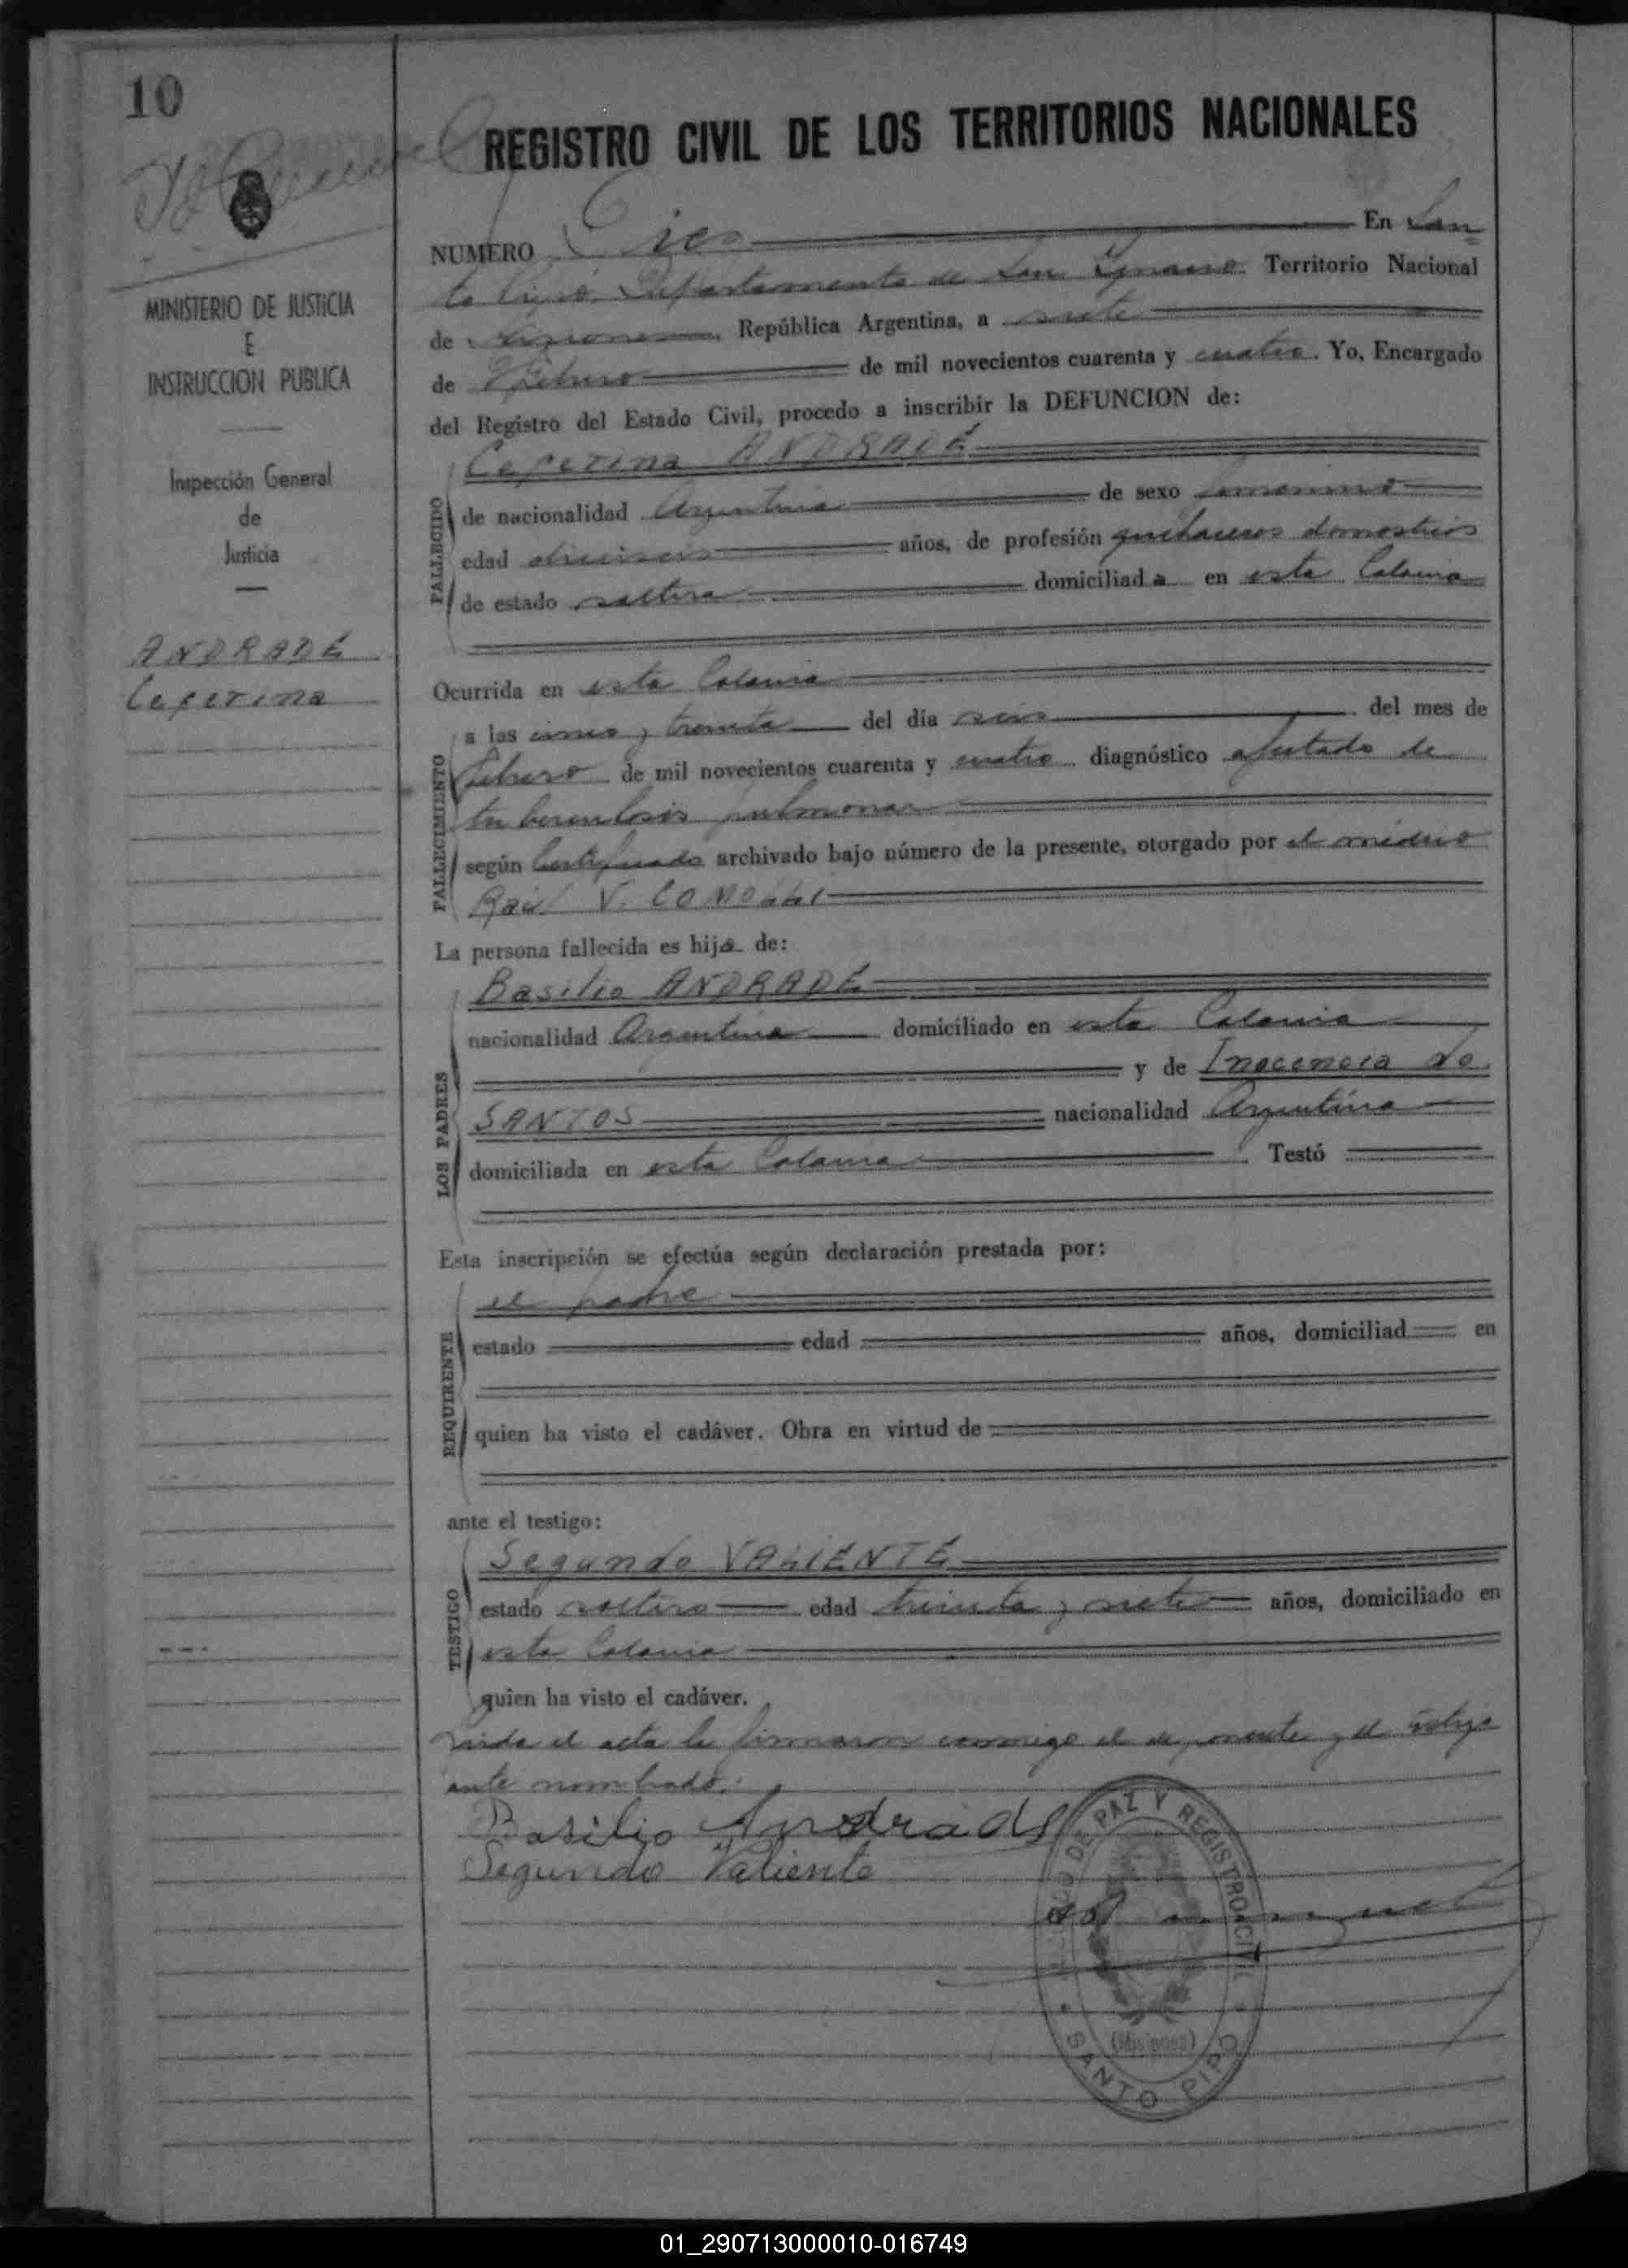 10
REGISTRO CIVIL DE LOS TERRITORIOS NACIONALES
NUMERO Diez En San=
to Pipó, Departamento de San Ignacio. Territorio Nacional
de Misiones, República Argentina, a siete
de Febrero de mil novecientos cuarenta y cuatro. Yo, Encargado
del Registro del Estado Civil, procedo a inscribir la DEFUNCION de:
MINISTERIO DE JUSTICIA
E
INSTRUCCION PUBLICA
Inspección General
de
Justicia
ANDRADE
Ceferina
FALLECIDO
Ceferina ANDRADE
de nacionalidad Argentina de sexo femenino
edad dieciseis años, de profesión quehaceres domesticos
de estado soltera domiciliada en esta Colonia
Ocurrida en esta Colonia
FALLECIMIENTO
a las cinco y treinta del día seis del mes de
Febrero de mil novecientos cuarenta y cuatro diagnóstico afectado de
tuberculosis pulmonar
según Certificado archivado bajo número de la presente, otorgado por el médico
Raúl V.
La persona fallecida es hija de:
LOS PADRES
Basilio ANDRADE
nacionalidad Argentina domiciliado en esta Colonia
y de Inocencia de
SANTOS nacionalidad Argentina
domiciliada en esta Colonia Testó
Esta inscripción se efectúa según declaración prestada por:
REQUIRENTE
el padre
estado edad años, domiciliad en
quien ha visto el cadáver. Obra en virtud de
ante el testigo:
TESTIGO
Segundo VALIENTE
estado soltero edad treinta y siete años, domiciliado en
esta Colonia
quien ha visto el cadáver.
Leida el acta la firmaron conmigo el exponente y el testigo
ante nombrado.
Basilio Andrade
Segundo Valiente
JUZGADO DE PAZ Y REGISTRO CIVIL
(Misiones)
SANTO PIPO
01_290713000010-016749